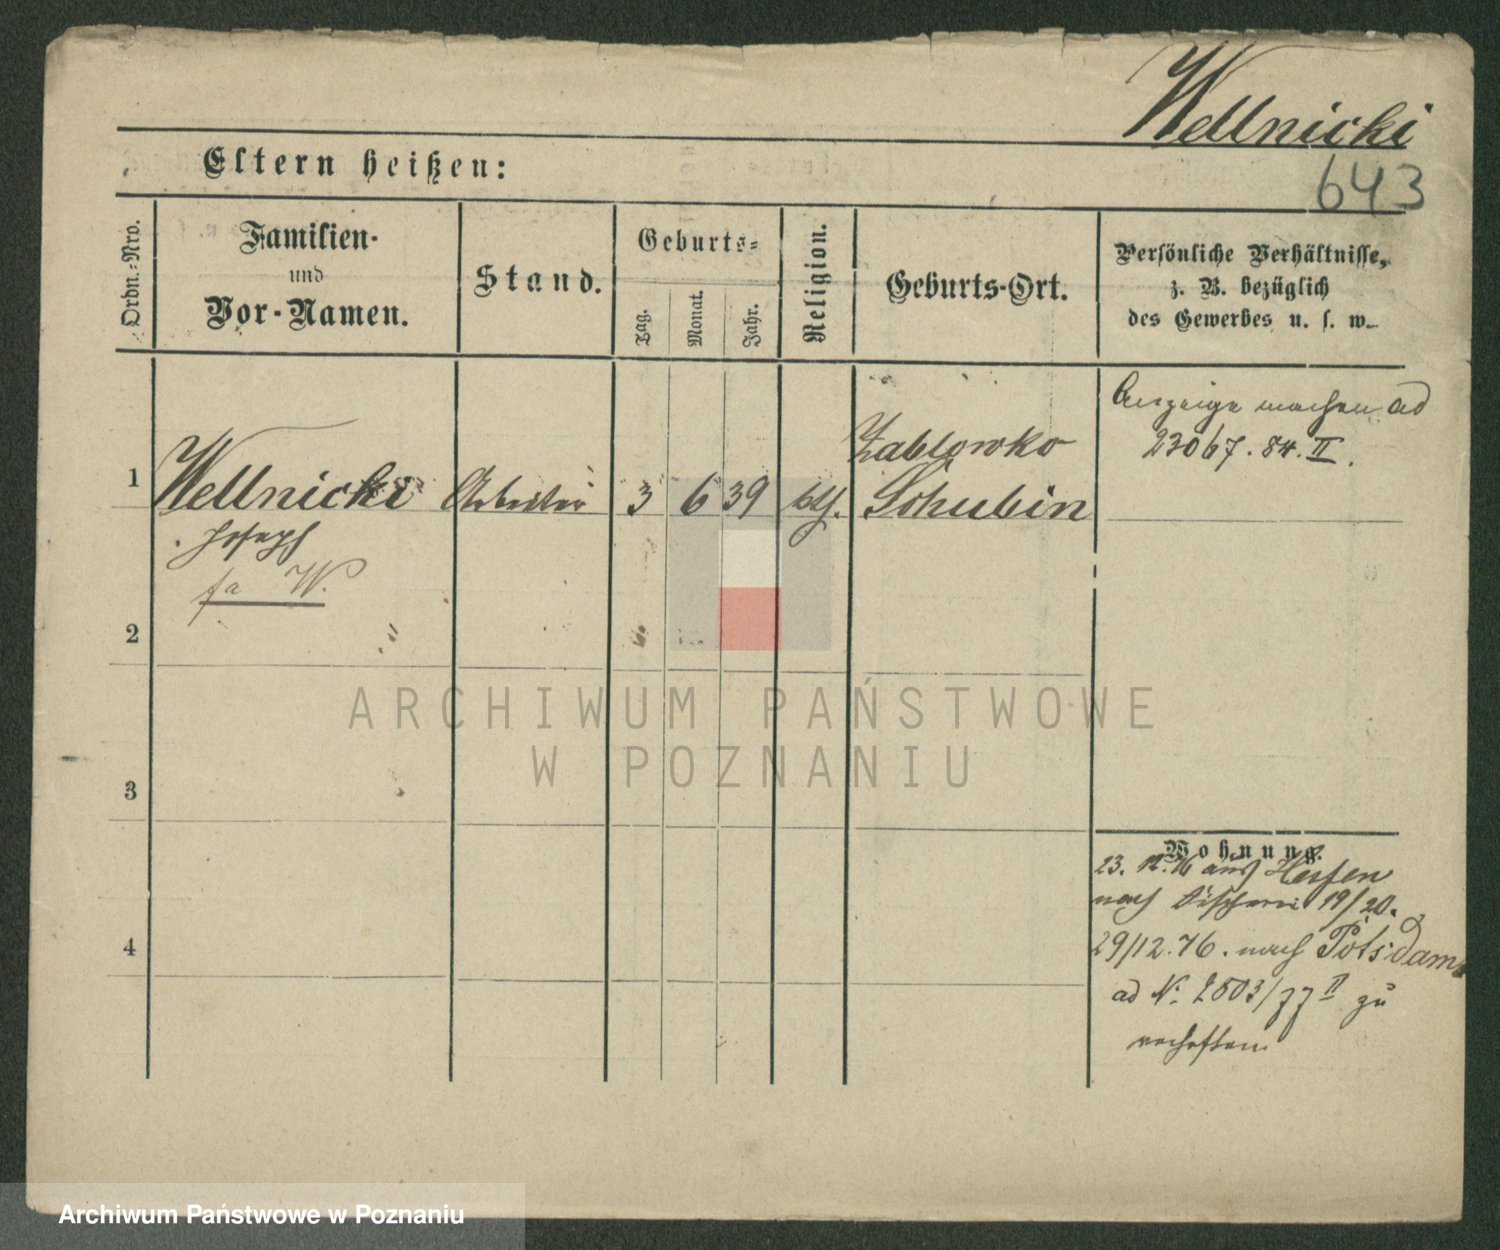 Wellnicki
643
Eltern heißen:
Ordn.-Nro.
Familien-
und
Vor-Namen.
Stand.
Geburts-
Tag.
Monat.
Jahr.
Religion.
Geburts-Ort.
Persönliche Verhältnisse,
z. B. bezüglich
des Gewerbes u. s. w.
1
Wellnicki
Joseph
fa W.
Arbeiter
3
6
39
kth.
Zablowko
Schubin
Anzeige machen ad
23067. 84. II.
2
3
4
Wohnung.
23. 12. 76 aus
nach Fischerei 19/20.
29/12. 76. nach Potsdam
ad N. 2503/77 II zu
verhaften
ARCHIWUM PAŃSTWOWE
W POZNANIU
Archiwum Państwowe w Poznaniu